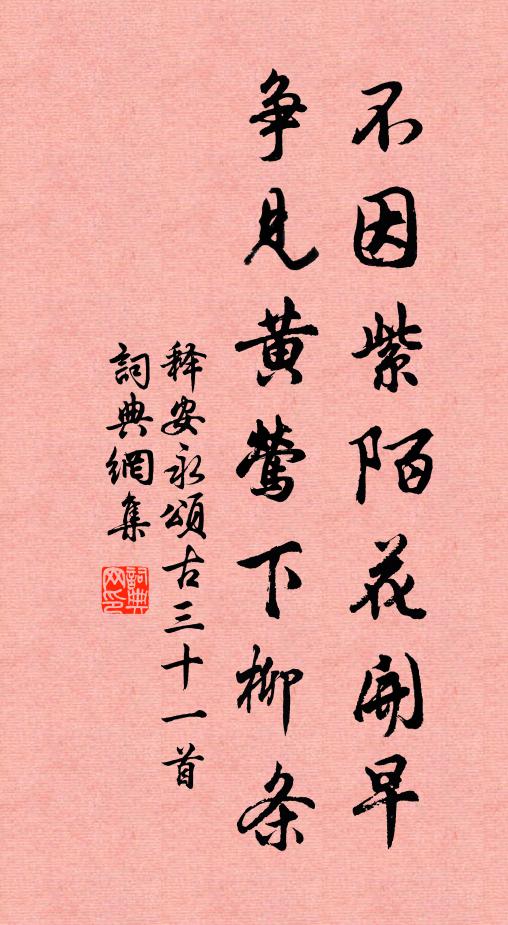 不因紫陌花開早
争見黄鶯下柳条
释安永頌古三十一首
詞典網集
詞典网印